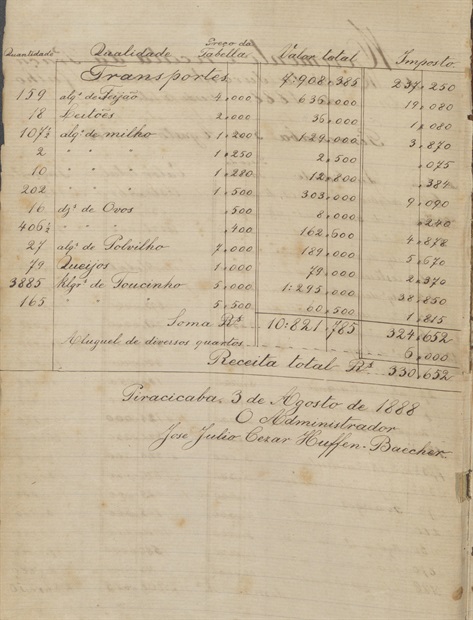 Quantidade Qualidade Preço da Tabella Valor total Imposto
Transportes 7:908,385 237,250
159 alqs de Feijão 4,000 636,000 19,080
18 Leitões 2,000 36,000 1,080
107½ alqs de milho 1,200 129,000 3,870
2 " " " 1,250 2,500 ,075
10 " " " 1,280 12,800 ,384
202 " " " 1,500 303,000 9,090
16 dzs de Ovos ,500 8,000 ,240
406½ " " " ,400 162,600 4,878
27 alqs de Polvilho 7,000 189,000 5,670
79 Queijos 1,000 79,000 2,370
3885 klgrs de Toucinho 5,000 1:295,000 38,850
165 " " " 5,500 60,500 1,815
Soma Rs 10:821,785 324,652
Aluguel de diversos quartos 6,000
Receita total Rs 330,652
Piracicaba, 3 de Agosto de 1888
O Administrador
José Julio Cezar Huffen-Baecher